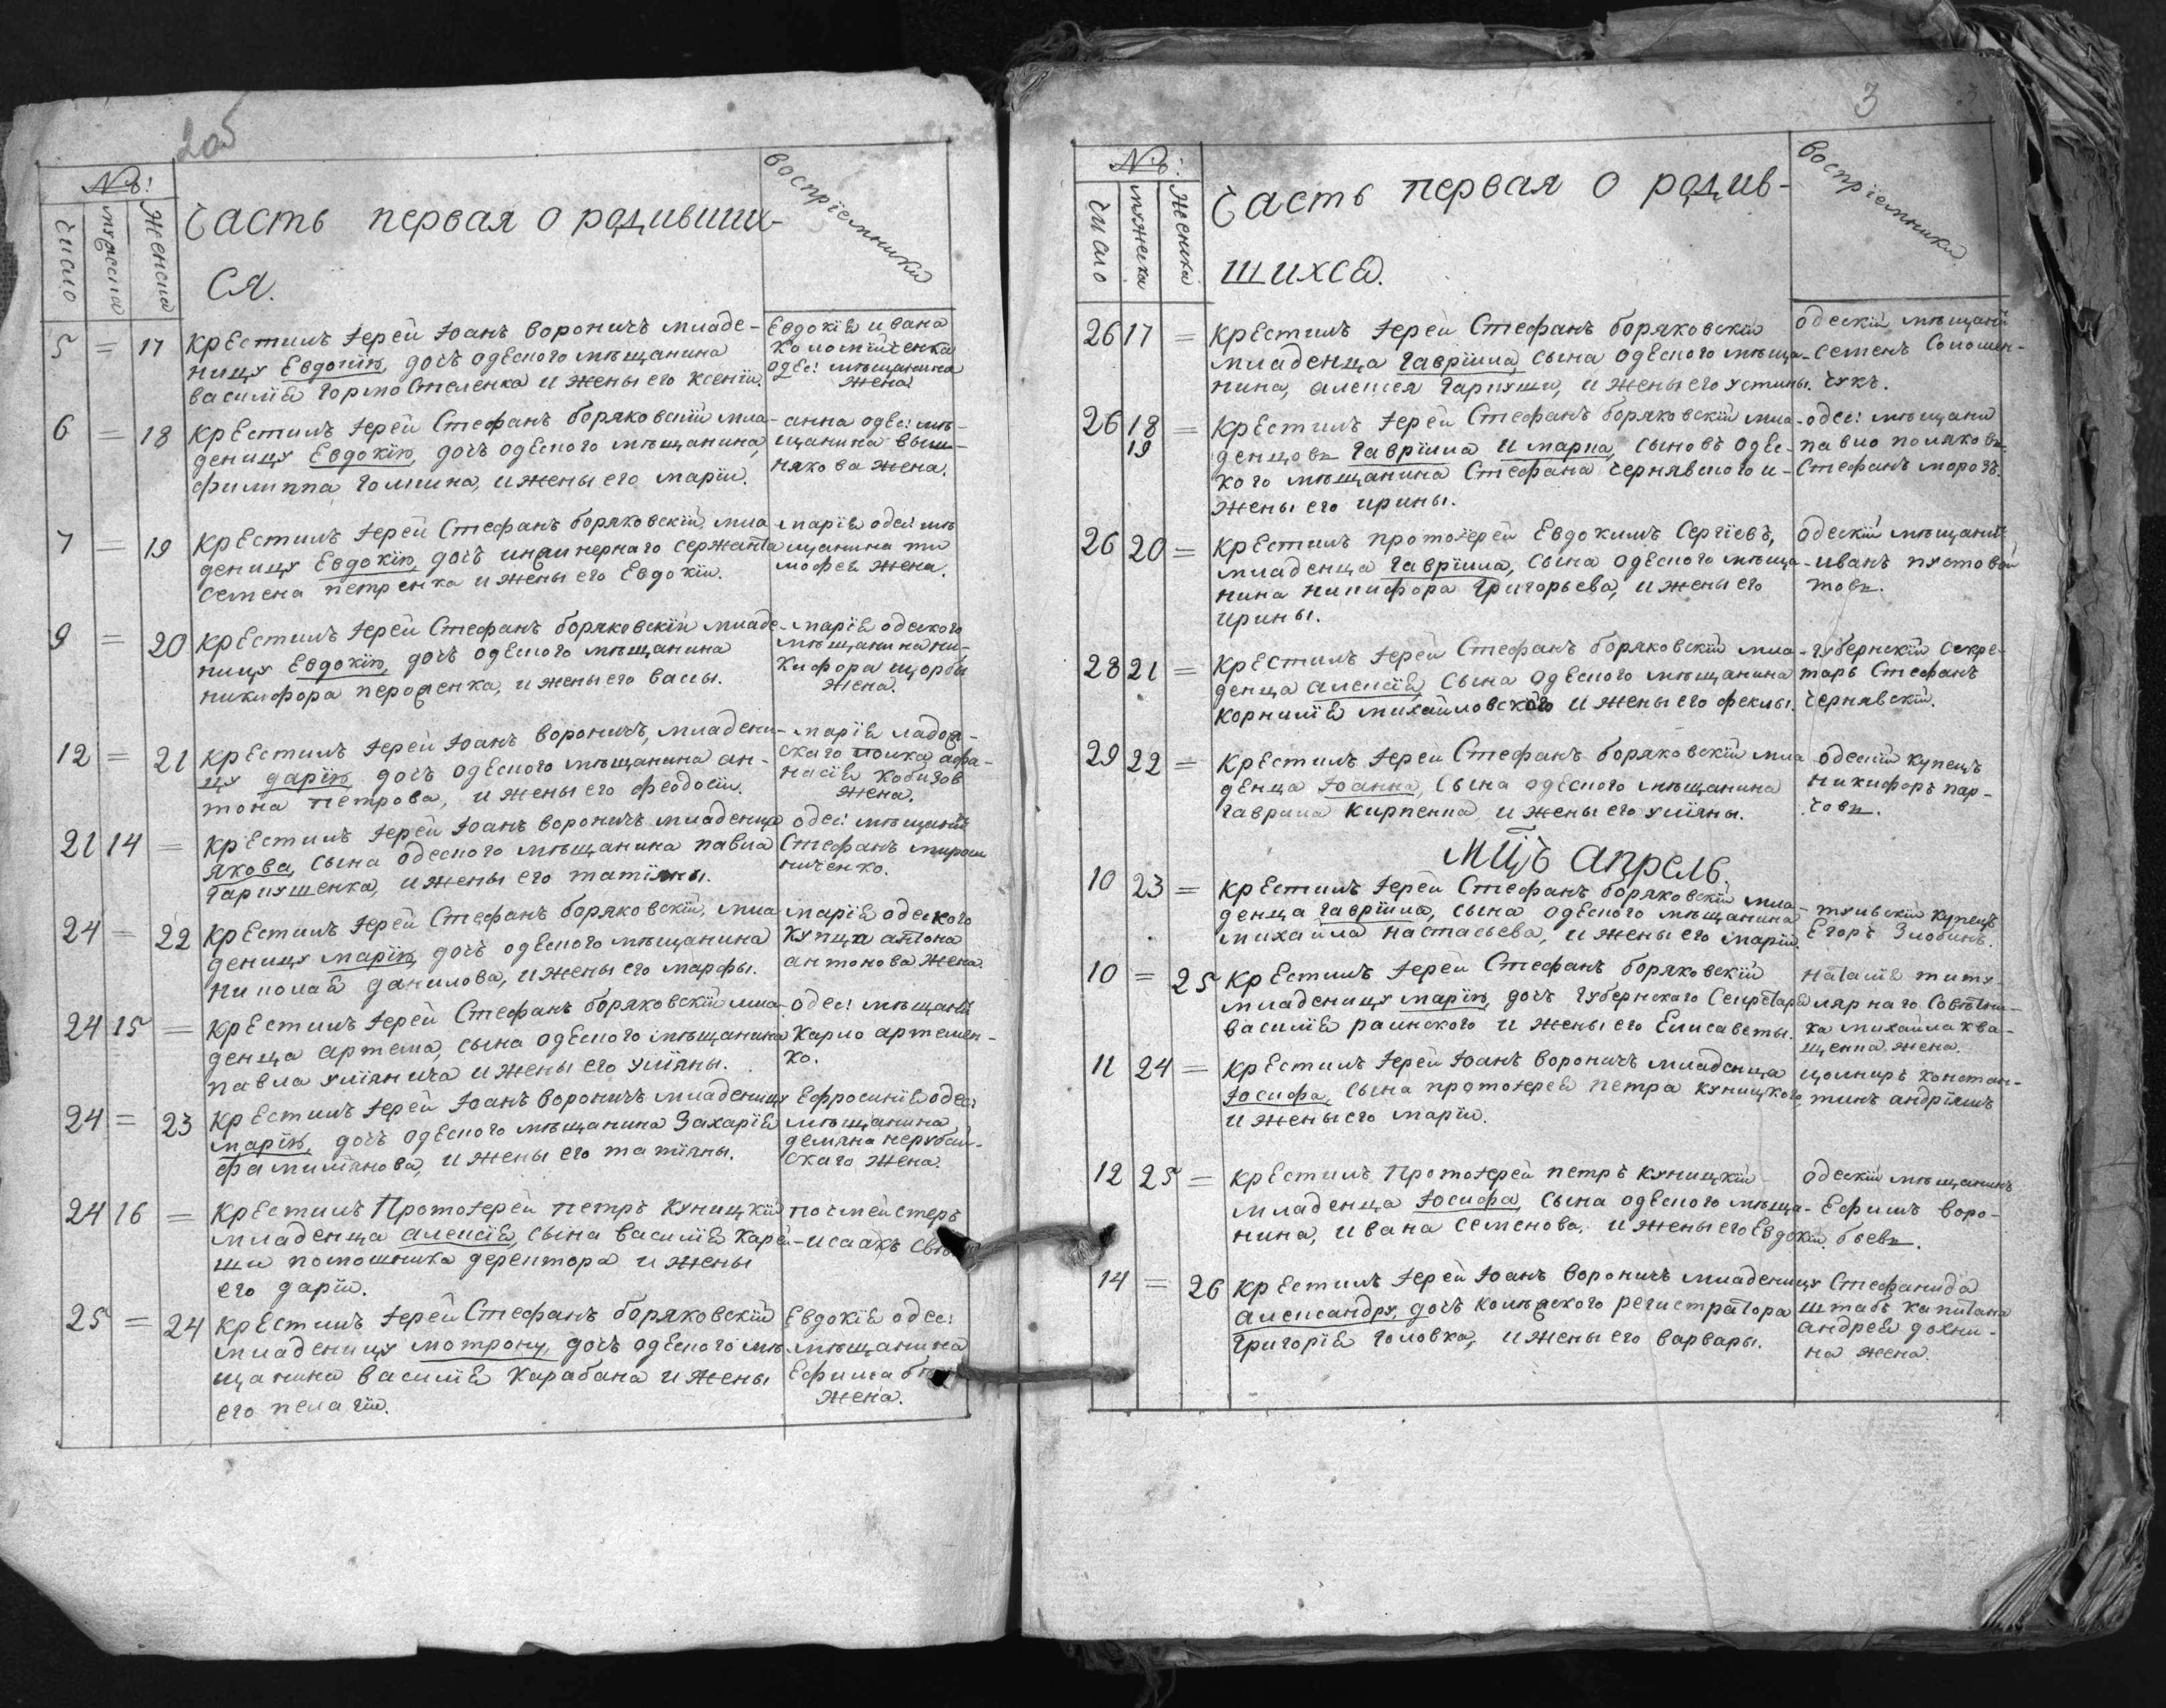 2об
№: Часть первая о родивших-
ся.
число
мужеска
женска
воспріемники
5 = 17 Крестилъ іерей Іоанъ Вороничъ младе-
ницу Евдокію, дочь одеского мѣщанина
василія Горлостеленка и жены его ксеніи.
Евдокія ивана
коломійченка
одес: мѣщанина
жена
6 = 18 Крестилъ іерей Стефанъ Боряковскій мла-
деницу Евдокію, дочь одеского мѣщанина,
филиппа Голшина, и жены его маріи.
анна одес: мѣ-
щанина выш-
някова жена.
7 = 19 Крестилъ іерей Стефанъ Боряковскій мла
деницу Евдокію, дочь инжинернаго сержанта
семена петренка и жены его Евдокіи.
марія одес: мѣ
щанина ти
мофея жена.
9 = 20 Крестилъ іерей Стефанъ Боряковскій младе-
ницу Евдокію, дочь одеского мѣщанина
никифора пероденка, и жены его васы.
марія одеского
мѣщанина ни-
кифора щорбы
жена.
12 = 21 Крестилъ іерей Іоанъ Вороничъ, младени-
цу дарію, дочь одеского мѣщанина ан-
тона петрова, и жены его феодосіи.
марія ладож-
скаго полка афа-
насія кобизов
жена.
21 14 = Крестилъ іерей Іоанъ Вороничъ младенца
якова, сына одеского мѣщанина павла
Гарпушенка, и жены его татіяны.
одес: мѣщанин
Стефанъ мирош
ниченко.
24 = 22 Крестилъ іерей Стефанъ Боряковскій, мла
деницу марію, дочь одеского мѣщанина
николая данилова, и жены его марфы.
марія одеского
купца антона
антонова жена.
24 15 = Крестилъ іерей Стефанъ Боряковскій мла-
денца артема, сына одеского мѣщанина
павла уліянича и жены его уліяны.
одес: мѣщанин
Карпо артемен-
ко.
24 = 23 Крестилъ іерей Іоанъ Вороничъ младеницу
марію, дочь одеского мѣщанина Захарія
фамиліянова, и жены его татіяны.
Ефросинія одес:
мѣщанина
демяна нерубай-
скаго жена.
24 16 = Крестилъ Протоіерей петръ Куницкій
младенца алексія, сына василія Карей-
ши помошника деректора и жены
его даріи.
почмейстеръ
исаакъ
25 = 24 Крестилъ іерей Стефанъ Боряковскій
младеницу мотрону, дочь одеского мѣ
щанина василія Карабана и жены
его пелагіи.
Евдокія одес:
мѣщанина
Ефима
жена.
3
№: Часть первая о родив-
шихся.
число
мужеска
женска
воспріемники
26 17 = Крестилъ іерей Стефанъ Боряковскій
младенца Гавріила, сына одеского мѣща-
нина, алексея Гарпуши, и жены его устины.
одескій мѣщанин
семенъ Соломен-
чукъ.
26 18 19 = Крестилъ іерей Стефанъ Боряковскій мла-
денцовъ Гавріила и марка, сыновъ одес-
кого мѣщанина Стефана Чернявского и
жены его ирины.
одес: мѣщани
павло поляковъ
Стефанъ морозъ.
26 20 = Крестилъ протоіерей Евдокимъ Сергіевъ,
младенца Гавріила, сына одеского мѣща-
нина никифора Григорьева, и жены его
ирины.
одескій мѣщанин
иванъ пустовой
товъ.
28 21 = Крестилъ іерей Стефанъ Боряковскій мла-
денца алексія, сына одеского мѣщанина
Корнилія михайловского и жены его феклы.
Губернскій секре-
таръ Стефанъ
Чернявскій.
29 22 = Крестилъ іерей Стефанъ Боряковскій мла
денца Іоанна, сына одеского мѣщанина
Гаврила Кирпенка, и жены его уліяны.
одескій купецъ
никифоръ пар-
човъ.
Мцъ Апрель.
10 23 = Крестилъ іерей Стефанъ Боряковскій мла-
денца Гавріила, сына одеского мѣщанина
михайла настасьева, и жены его маріи.
тульскій купецъ
Егоръ Злобинъ.
10 = 25 Крестилъ іерей Стефанъ Боряковскій
младеницу марію, дочь Губернскаго Секретаря
василія раинского и жены его Елисаветы.
наталія титу-
лярнаго совѣтни-
ка михайла ква-
щенка жена.
11 24 = Крестилъ іерей Іоанъ Вороничъ младенца
Іосифа, сына протоіерея петра куницкого,
и жены его маріи.
цолнеръ констан-
тинъ андріяшъ
12 25 = Крестилъ Протоіерей петръ Куницкій
младенца Іосифа, сына одеского мѣща-
нина, ивана семенова, и жены его Евдокіи.
одескій мѣщанинъ
Ефимъ воро-
боевъ.
14 = 26 Крестилъ іерей Іоанъ Вороничъ младеницу
александру, дочь колежского регистратора
Григорія Головка, и жены его варвары.
Стефанида
штабъ капитана
андрея дохни-
на жена.